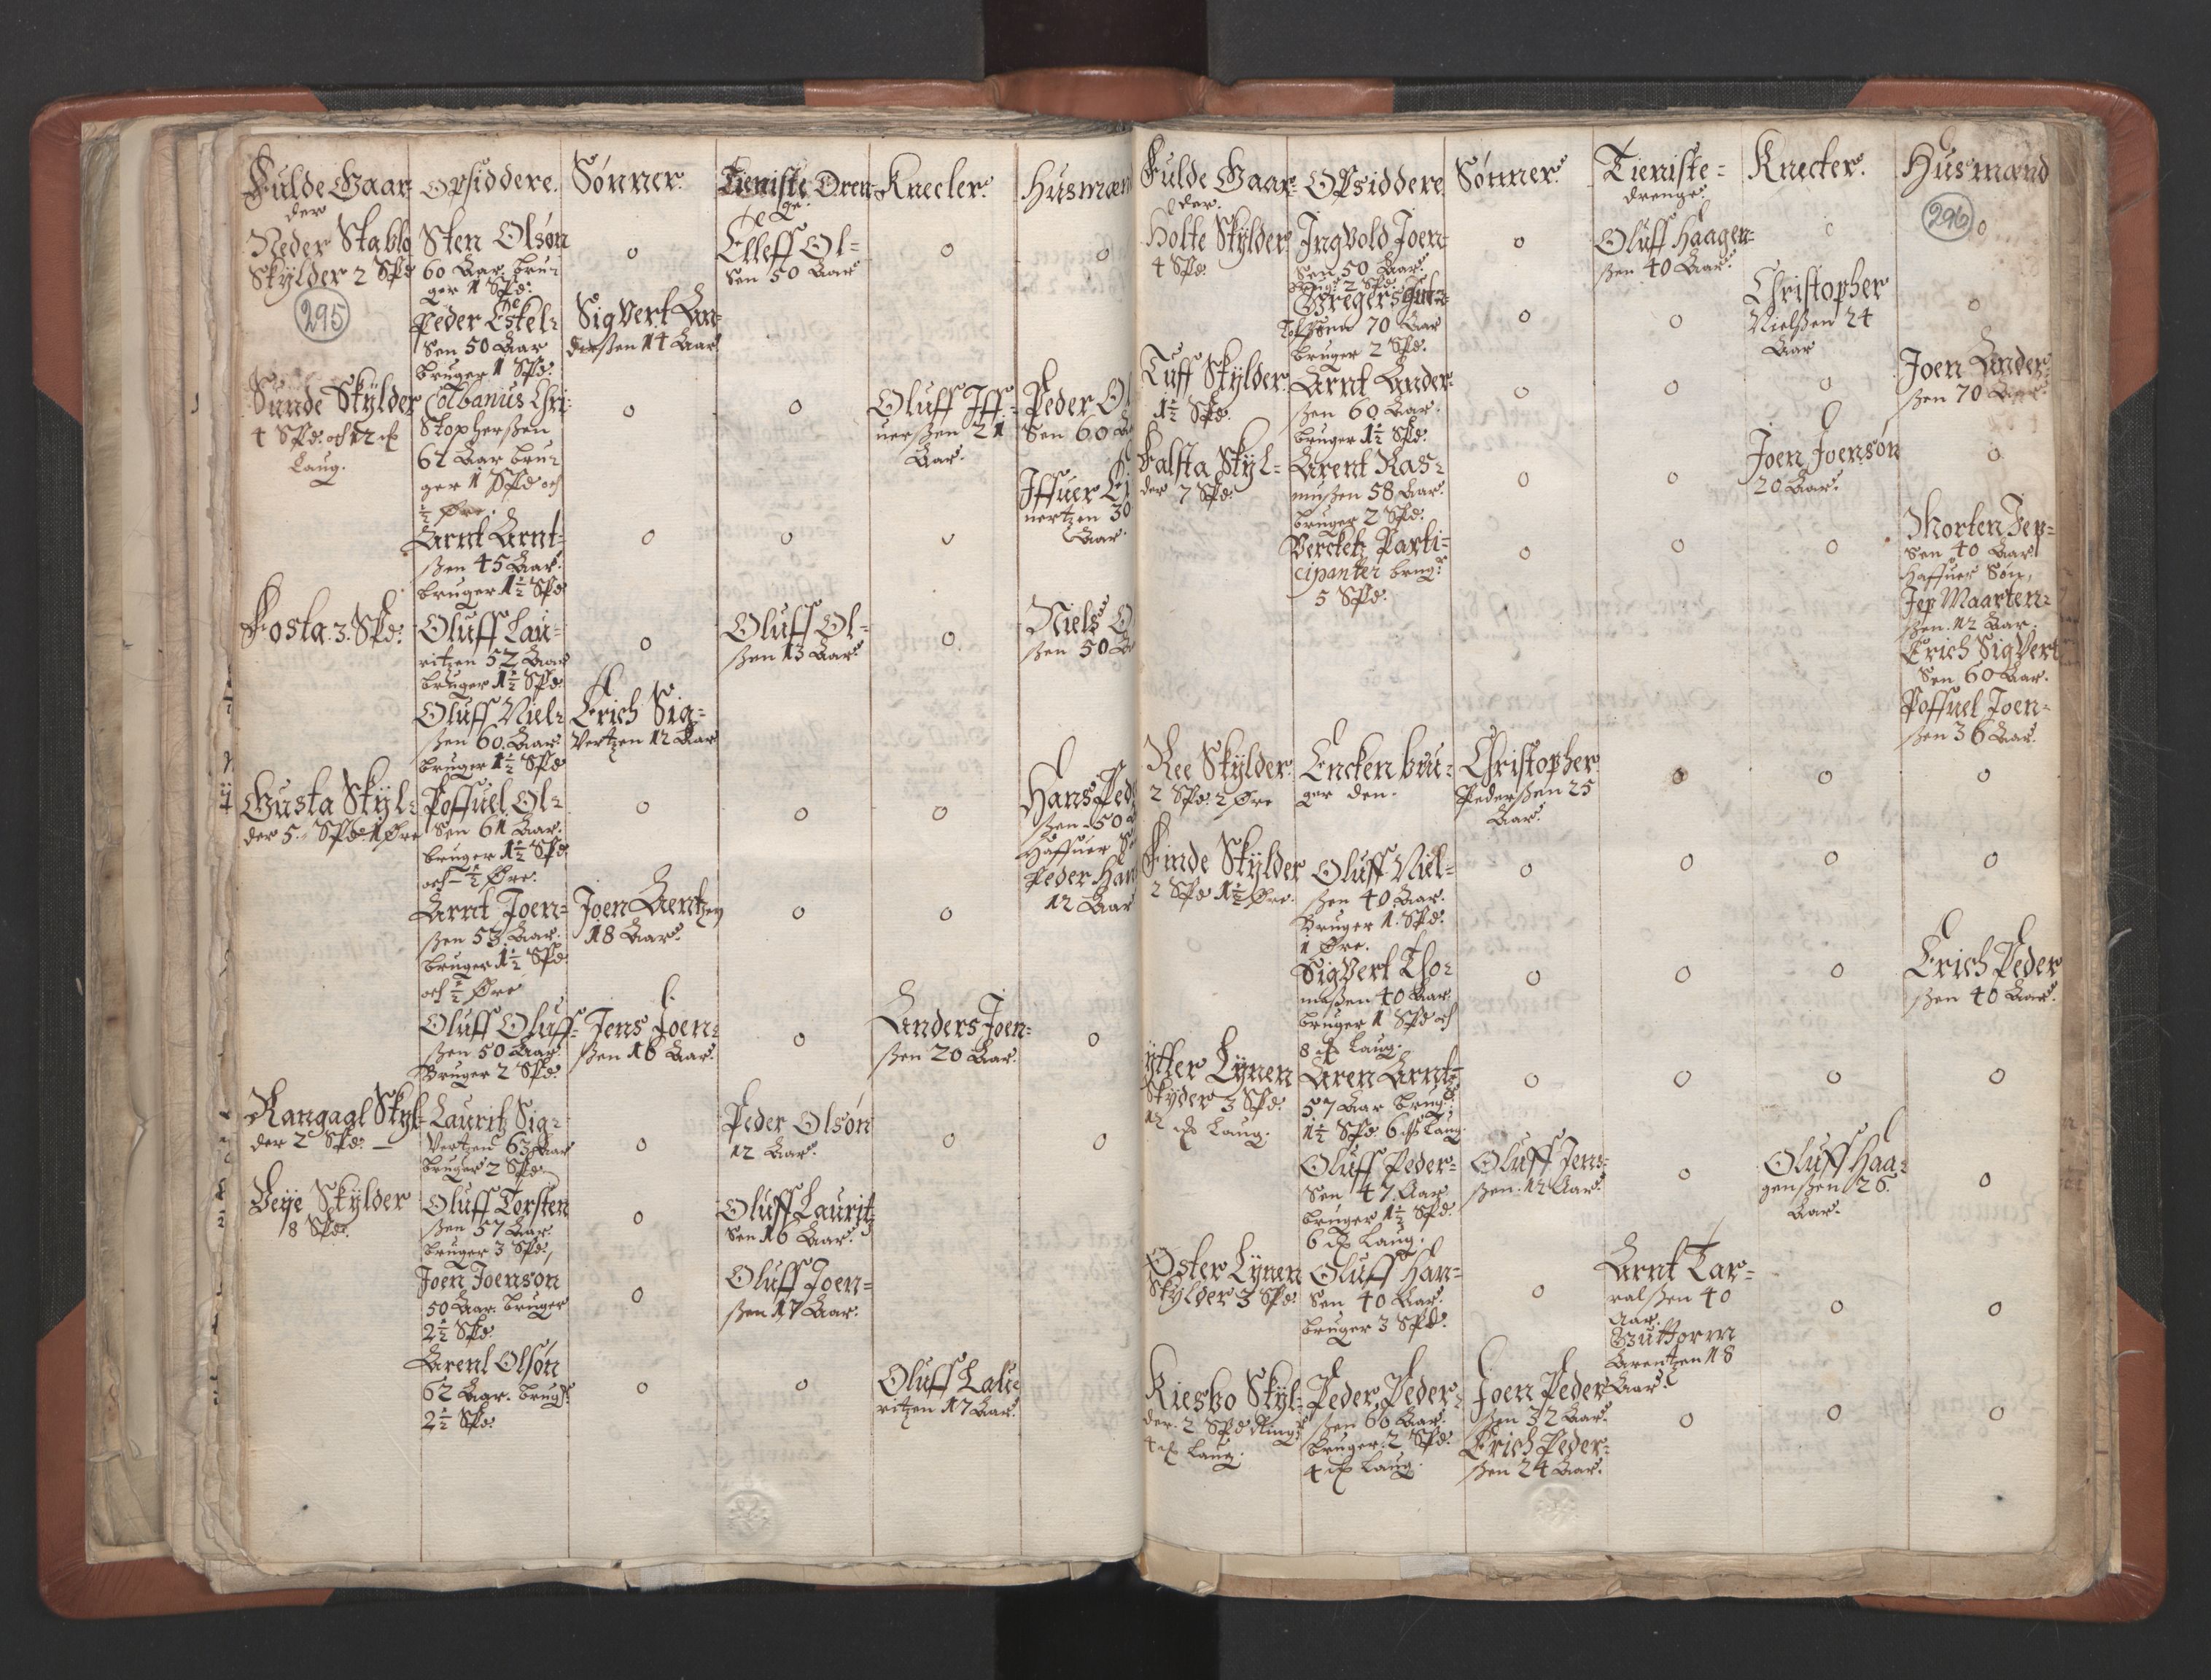 Fulde Gaar-
der
Opsiddere.
Sønner.
Tieniste Dren-
ge.
Knecter.
Husmæn
Neder Stablo
Skÿlder 2 Spd
295
Sten Olsøn
60 Aar. bru-
ger 1 Spd:
o
Elleff Ol-
sen 50 Aar
o
o
Peder Eskel-
sen 50 Aar
bruger 1 Spd:
Sigvert An-
derßen 14 Aar
Sunde Skÿlder
4 Spd: och 12
Laug.
Albanus Chri-
stopherßen
62 Aar bru-
ger 1 Spd och
½ Øre.
o
o
Oluff Iff-
uerßen 21
Aar.
Peder Ol
sen 60
Arnt Arnt-
ßen 45 Aar.
bruger 1½ Spd
o
o
o
Iffuer
uertzen 30
Aar.
Fosta. 3. Spd:
Oluff Lau-
ritzen 52 Aar
bruger 1½ Spd.
o
Oluff Ol-
ßen 13 Aar.
o
Niels O
ßen 50
Oluff Niel-
ßen 60. Aar.
bruger 1½ Spd
Erich Sig-
vertzen 12 Aar
Gusta Skÿl-
der 5. Spd 1 Øre
Poffuel Ol-
sen 61 Aar.
bruger 1½ Spd
och ½ Øre.
o
o
o
Hans Ped
ßen 50
Haffuer S
Peder Han
12 Aar
Arnt Joen-
ßen 53 Aar.
bruger 1½ Spd
och ½ Øre
Joen Arntzen
18 Aar.
o
o
Oluff Oluff-
ßen 50 Aar.
Bruger 2 Spd.
Jens Joen-
ßen 16 Aar.
o
Anders Joen-
ßen 20 Aar.
o
Rangagl Skÿl-
der 2 Spd:
Lauritz Sig-
vertzen 63 Aar
bruger 2 Spd
o
Peder Olsøn
12 Aar.
o
o
Veÿe Skÿlder
8 Spd.
Oluff Torsten
ßen 57 Aar.
bruger 3 Spd.
o
Oluff Lauritz
sen 16 Aar.
Joen Joenson
50 Aar. bruger
2½ Spd.
o
Oluff Joen-
ßen 17 Aar.
Arent Olsøn
62 Aar. brug:
2½ Spd:
o
o
Oluff Lau-
ritzen 17 Aar.
Fulde Gaar-
der.
Opsiddere
Sønner.
Tieniste-
drenge.
Knecter.
Husmænd
296
Holte Skÿlder
4 Spd.
Ingvold Joen-
sen 50 Aar.
brug: 2 Spd.
o
Oluff Haagen-
ßen 40 Aar.
o
o
Gregers
70 Aar
bruger 2 Spd.
o
o
Christopher
Nielßen 24
Aar
o
Tuff Skÿlder
1½ Spd.
Arnt Ander-
ßen 60 Aar.
bruger 1½ Spd.
o
o
o
Joen Ander-
ßen 70 Aar.
Falsta Skÿl-
der 7 Spd.
Arent Ras-
mußen 58 Aar.
bruger 2 Spd.
o
o
Joen Joensøn
20 Aar.
o
Vercketz Parti-
cipanter brug:
5 Spd.
o
o
o
Morten Jep-
sen 40 Aar.
Haffuer Søn,
Jep Maarten-
ßen. 12 Aar.
Erich Sigvert
sen 60 Aar.
Poffuel Joen-
ßen 36 Aar.
Ree Skÿlder.
2 Spd. 2 Øre
Encken bru-
ger den.
Christopher
Pederßen 25
Aar.
o
o
o
Finde Skÿlder
2 Spd 1½ Øre.
Oluff Niel-
ßen 40 Aar.
Bruger 1. Spd.
1 Øre.
o
o
o
o
Sigvert Tho-
maßen 40 Aar.
bruger 1 Spd och
8 Laug.
o
o
o
Erich Peder
ßen 40 Aar.
ÿtter Lÿnen
Skÿder 3 Spd.
12 Laug.
Aren Arntz
57 Aar brug:
1½ Spd. 6 Laug.
o
o
o
o
Oluff Peder-
sen 47. Aar
bruger 1½ Spd.
6 Laug.
Oluff Jens-
ßen. 12 Aar.
o
Oluff Haa-
genßen 26.
Aar.
o
Øster Lÿnen
Skÿlder 3 Spd.
Oluff Han-
sen 40 Aar.
bruger 3 Spd.
o
Arnt Tar-
ralßen 40
Aar.
Guttorm
Arentzen 18
Aar.
o
o
Riesbo Skÿl-
der. 2 Spd
4 Laug.
Peder Peder-
ßen 60 Aar.
bruger 2 Spd.
4 Laug.
Joen Peder
ßen 32 Aar.
Erich Peder-
ßen 24 Aar.
o
o
o